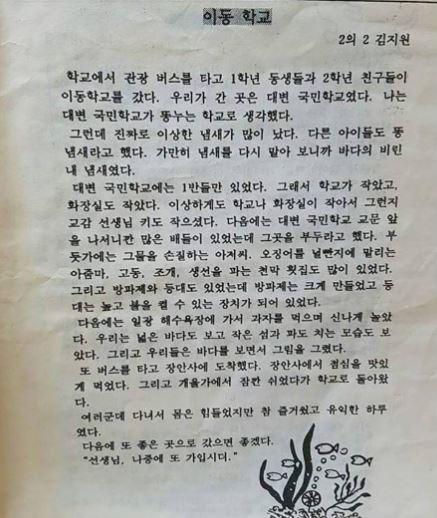 이동 학교
2의 2 김지원
학교에서 관광 버스를 타고 1학년 동생들과 2학년 친구들이
이동학교를 갔다. 우리가 간 곳은 대변 국민학교였다. 나는
대변 국민학교가 똥누는 학교로 생각했다.
그런데 진짜로 이상한 냄새가 많이 났다. 다른 아이들도 똥
냄새라고 했다. 가만히 냄새를 다시 맡아 보니까 바다의 비린
내 냄새였다.
대변 국민학교에는 1반들만 있었다. 그래서 학교가 작았고,
화장실도 작았다. 이상하게도 학교나 화장실이 작아서 그런지
교감 선생님 키도 작으셨다. 다음에는 대변 국민학교 교문 앞
을 나서니깐 많은 배들이 있었는데 그곳을 부두라고 했다. 부
둣가에는 그물을 손질하는 아저씨, 오징어를 널빤지에 말리는
아줌마, 고동, 조개, 생선을 파는 천막 횟집도 많이 있었다.
그리고 방파제와 등대도 있었는데 방파제는 크게 만들었고 등
대는 높고 불을 켤 수 있는 장치가 되어 있었다.
다음에는 일광 해수욕장에 가서 과자를 먹으며 신나게 놀았
다. 우리는 넓은 바다도 보고 작은 섬과 파도 치는 모습도 보
았다. 그리고 우리들은 바다를 보면서 그림을 그렸다.
또 버스를 타고 장안사에 도착했다. 장안사에서 점심을 맛있
게 먹었다. 그리고 개울가에서 잠깐 쉬었다가 학교로 돌아왔
다.
여러군데 다녀서 몸은 힘들었지만 참 즐거웠고 유익한 하루
였다.
다음에 또 좋은 곳으로 갔으면 좋겠다.
"선생님, 나중에 또 가입시더."